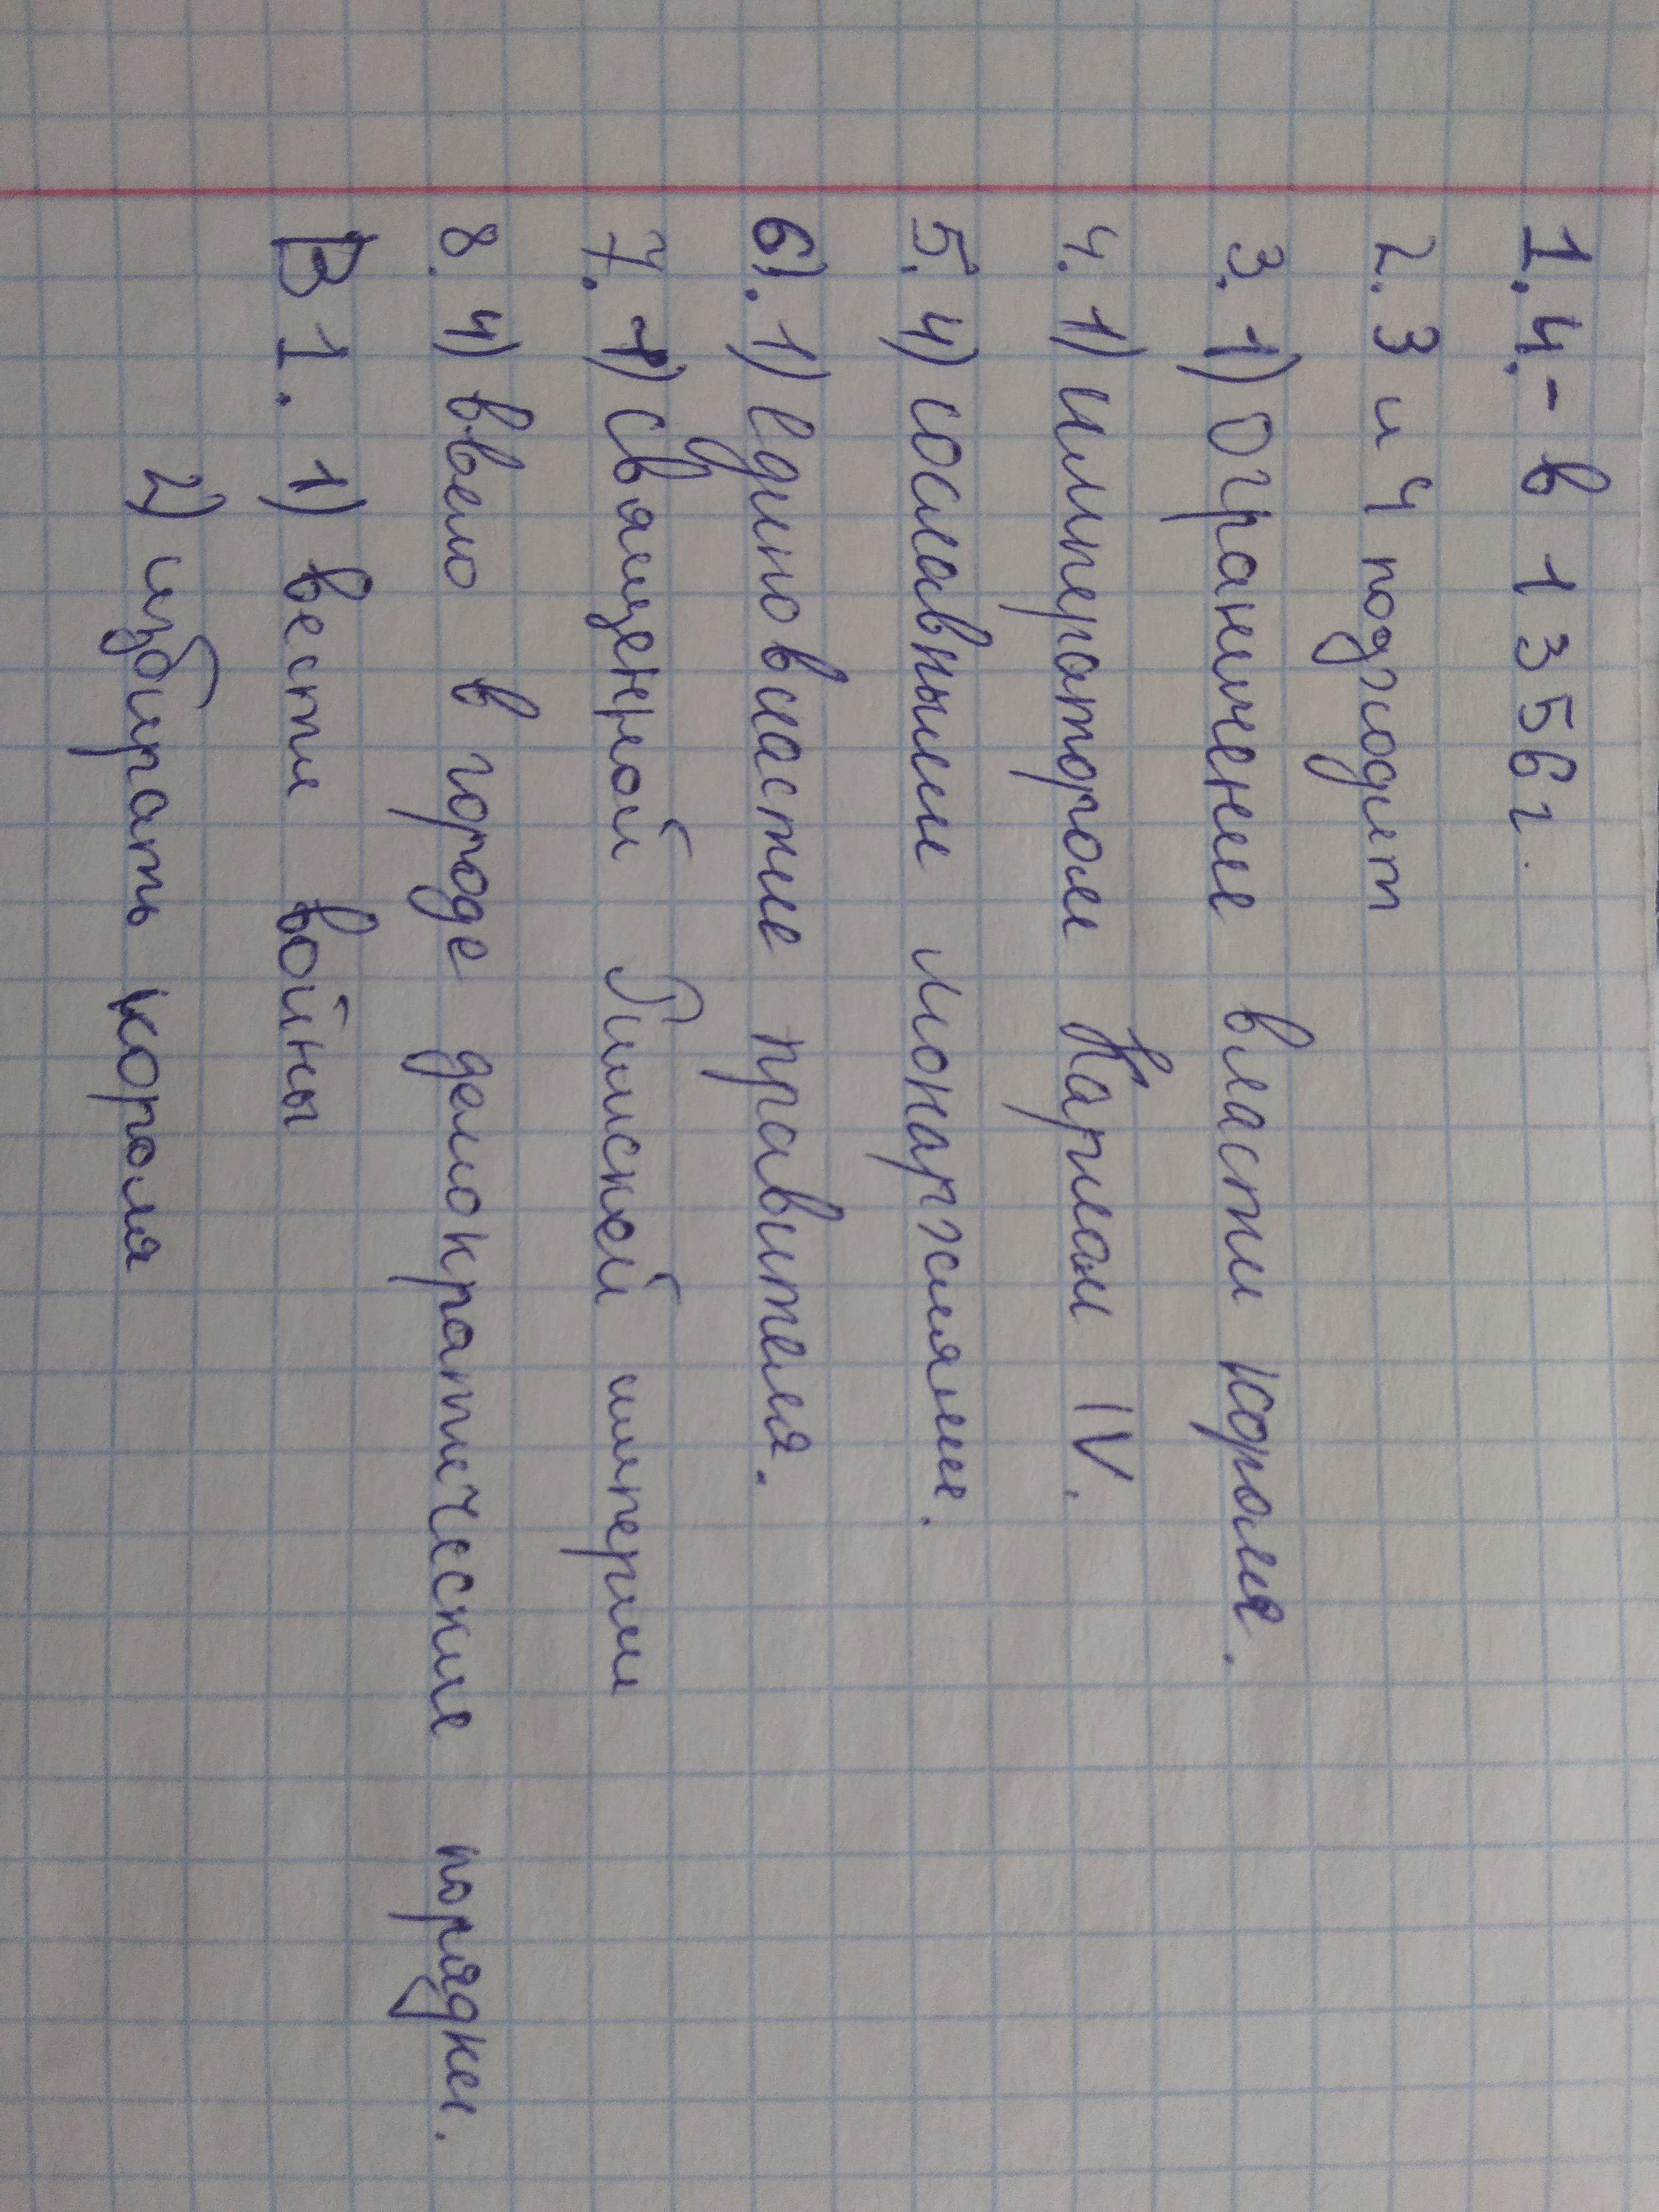 1.4.- в 1356г.
2. 3 и 4 подходит
3. 1) Ограничение власти короля.
4. 1) Императором Карлом IV.
5. 4) сословными монархиями.
6). 1) единовластие правителя.
7. 1) Священной Римской империи
8. 4) ввело в городе демократические порядки.
В 1. 1) вести войны
2) избирать короля